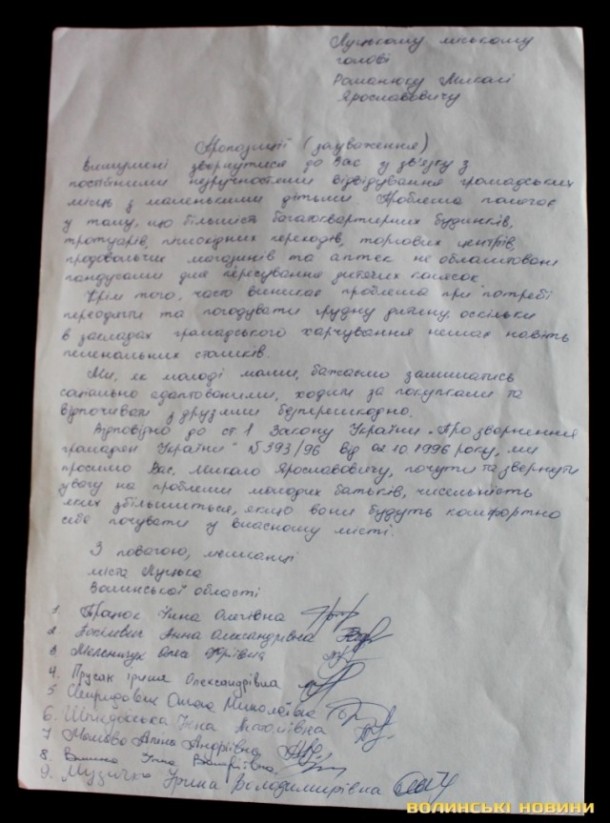 Луцькому міському
голові
Романюку Миколі
Ярославовичу
Пропозиції (зауваження)
Вимушені звернутися до Вас у зв'язку з
постійними незручностями відвідування громадських
місць з маленькими дітьми. Проблема полягає
у тому, що більшість багатоквартирних будинків,
тротуарів, пішохідних переходів, торгових центрів,
продовольчих магазинів та аптек не облаштовані
пандусами для пересування дитячих колясок.
Крім того, часто виникає проблема при потребі
переодягти та погодувати грудну дитину, оскільки
в закладах громадського харчування немає навіть
пеленальних столиків.
Ми, як молоді мами, бажаємо залишатись
соціально адаптованими, ходити за покупками та
відпочивати з друзями безперешкодно.
Відповідно до ст 1 Закону України „Про звернення
громадян України" №393/96 від 02.10.1996 року, ми
просимо Вас, Микола Ярославовичу, почути та звернути
увагу на проблеми молодих батьків, чисельність
яких збільшиться, якщо вони будуть комфортно
себе почувати у власному місті.
З повагою, мешканці
міста Луцька
Волинської області
1 Інна Олегівна
2 Анна Олександрівна
3 Мельничук Юріївна
4. Прусак Ірина Олександрівна
5 Миколаївна
6. Анатоліївна
7 Андріївна
8. Інна Валеріївна
9. Музичко Ірина Володимирівна
ВОЛИНСЬКІ НОВИНИ